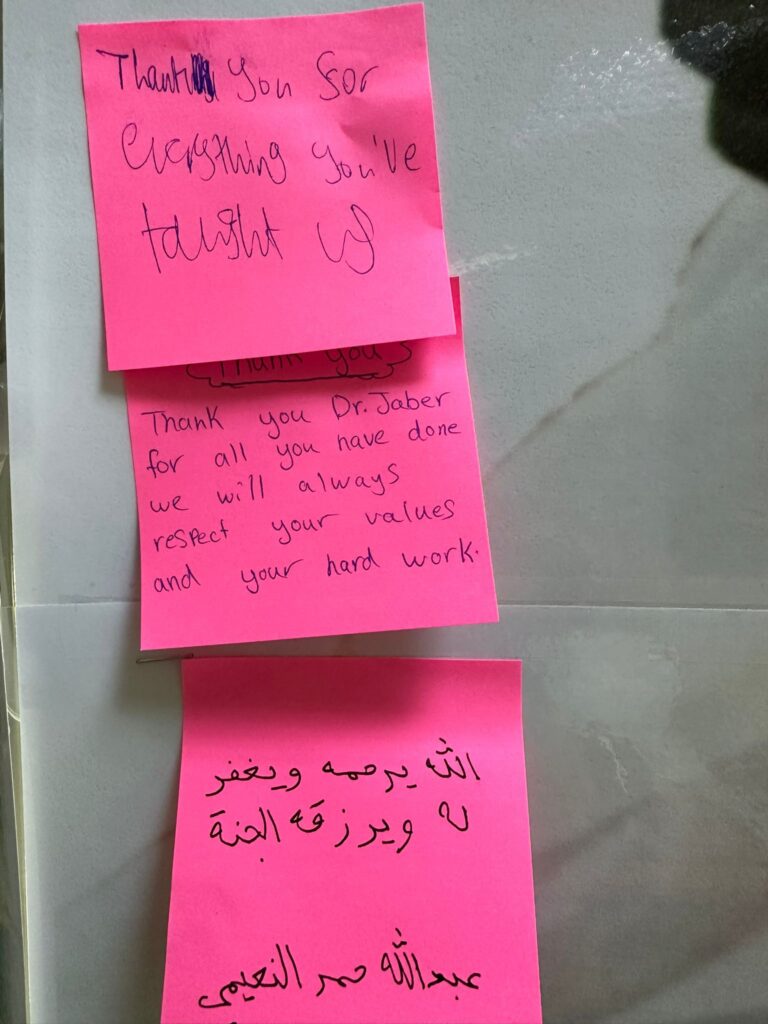 Thank You for
everything you've
taught us
Thank You
Thank you Dr. Jaber
for all you have done
we will always
respect your values
and your hard work.
الله يرحمه ويغفر
له ويرزقه الجنة
عبدالله حمد النعيمي